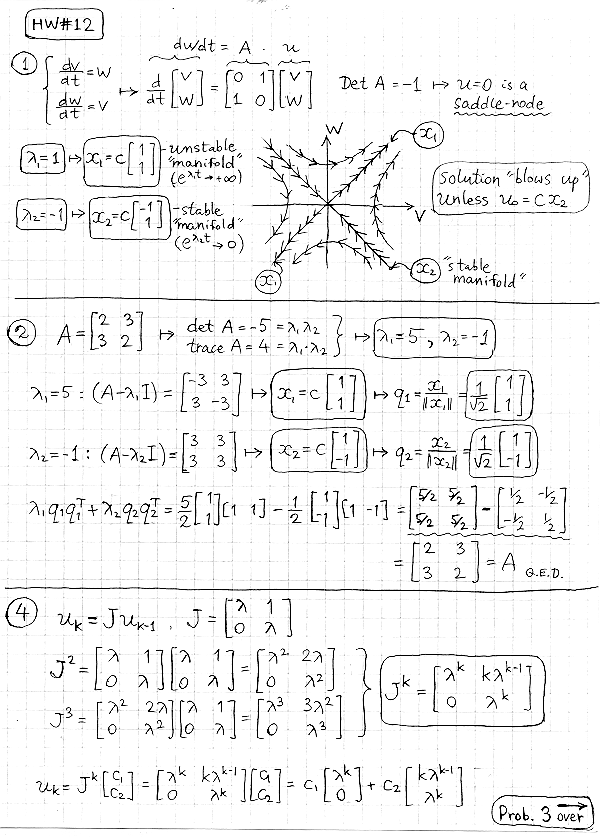 HW#12
① { dv/dt = w, dw/dt = v ↦ d/dt [v; w] = [0 1; 1 0] [v; w]
du/dt = A · u
Det A = -1 ↦ u=0 is a
saddle-node
λ₁=1 ↦ x₁ = c[1; 1] - unstable "manifold" (e^λ₁t → +∞)
λ₂=-1 ↦ x₂ = c[-1; 1] - stable "manifold" (e^λ₂t → 0)
W
V
x₁
x₁
x₂ "stable manifold"
Solution "blows up"
unless u₀ = C x₂
② A = [2 3; 3 2] ↦ det A = -5 = λ₁λ₂
trace A = 4 = λ₁·λ₂ } ↦ λ₁=5, λ₂=-1
λ₁=5 : (A-λ₁I) = [-3 3; 3 -3] ↦ x₁ = c[1; 1] ↦ q₁ = x₁/‖x₁‖ = 1/√2 [1; 1]
λ₂=-1 : (A-λ₂I) = [3 3; 3 3] ↦ x₂ = c[1; -1] ↦ q₂ = x₂/‖x₂‖ = 1/√2 [1; -1]
λ₁q₁q₁ᵀ + λ₂q₂q₂ᵀ = 5/2 [1; 1][1 1] - 1/2 [1; -1][1 -1] = [5/2 5/2; 5/2 5/2] - [1/2 -1/2; -1/2 1/2]
= [2 3; 3 2] = A Q.E.D.
④ u_k = J u_k-1 , J = [λ 1; 0 λ]
J² = [λ 1; 0 λ][λ 1; 0 λ] = [λ² 2λ; 0 λ²]
J³ = [λ² 2λ; 0 λ²][λ 1; 0 λ] = [λ³ 3λ²; 0 λ³]
J^k = [λ^k kλ^k-1; 0 λ^k]
u_k = J^k [c₁; c₂] = [λ^k kλ^k-1; 0 λ^k][c₁; c₂] = c₁ [λ^k; 0] + c₂ [kλ^k-1; λ^k]
Prob. 3 over →